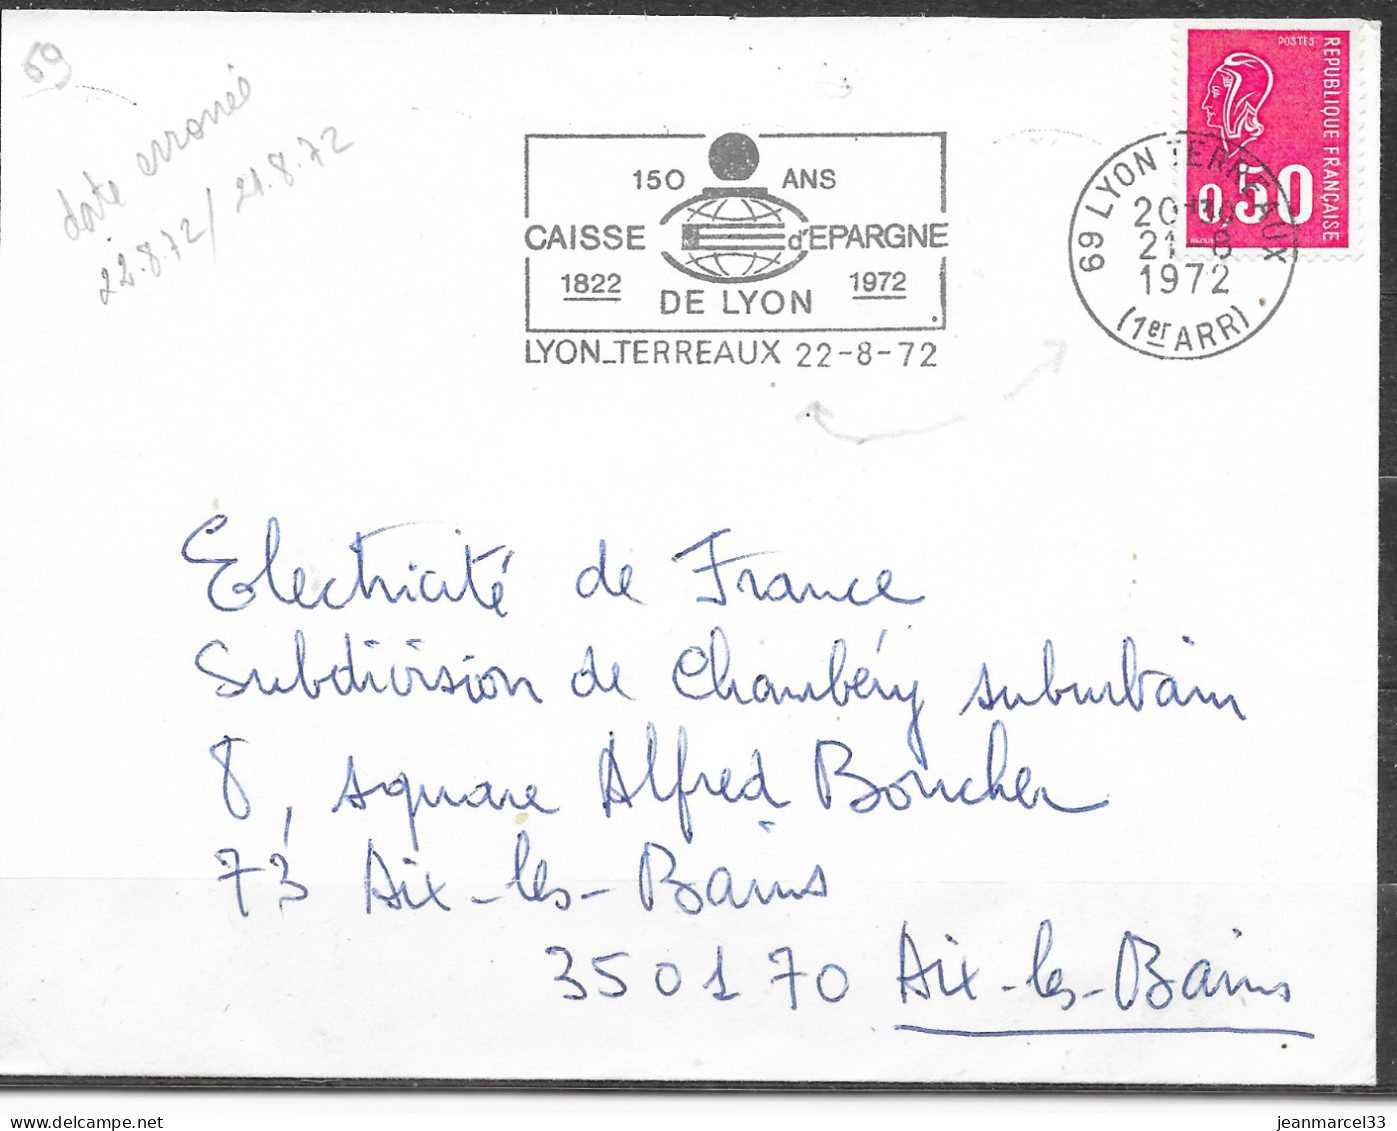 69
date erronée
22.8.72/21.8.72
150 ANS
CAISSE d'EPARGNE
1822 1972
DE LYON
LYON_TERREAUX 22-8-72
POSTES
REPUBLIQUE FRANÇAISE
0,50
69 LYON TERREAUX
21-8
1972
(1er ARR)
Electricité de France
Subdivision de Chambéry suburbain
8, square Alfred Boucher
73 Aix-les-Bains
350170 Aix-les-Bains
jeanmarcel33